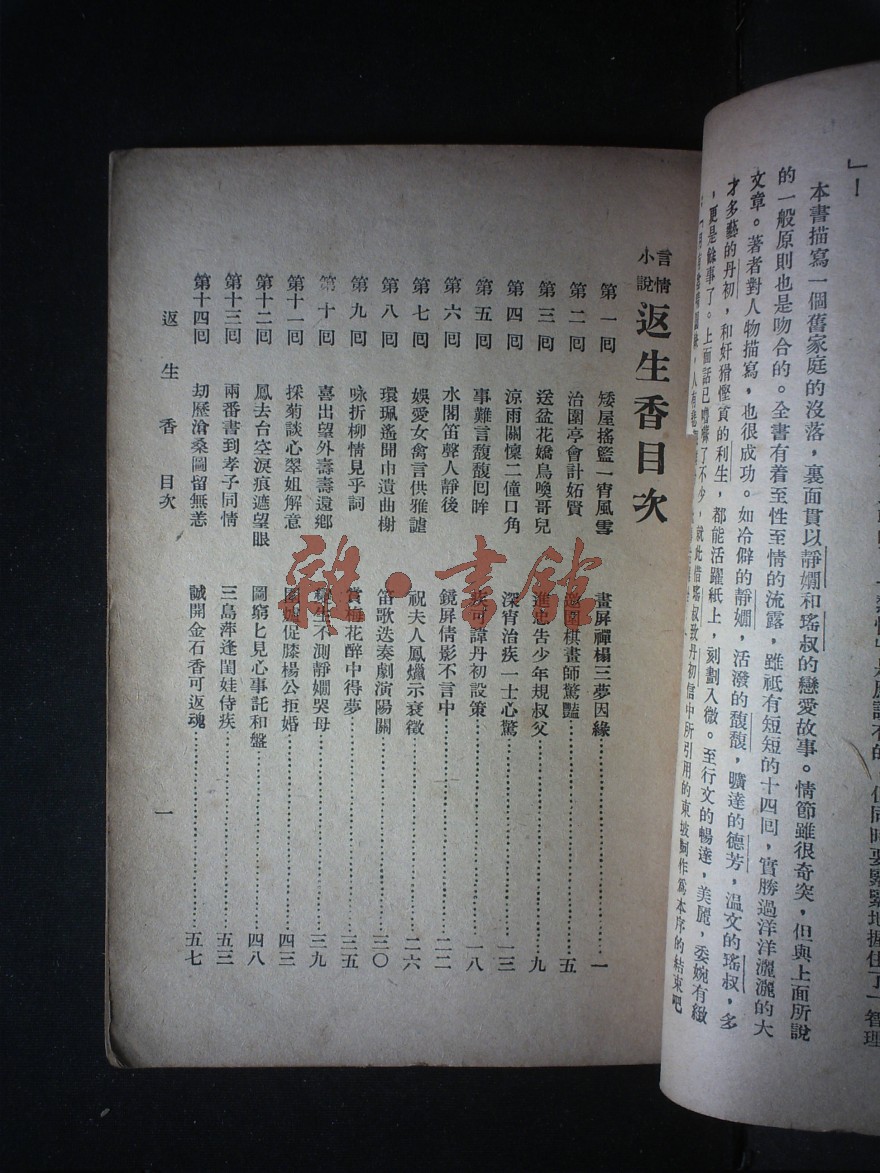 」！
本書描寫一個舊家庭的沒落，裏面貫以靜嫺和瑤叔的戀愛故事。情節雖很奇突，但與上面所說
的一般原則也是吻合的。全書有着至性至情的流露，雖祇有短短的十四囘，實勝過洋洋灑灑的大
文章。著者對人物描寫，也很成功。如冷僻的靜嫺，活潑的馥馥，曠達的德芳，溫文的瑤叔，多
才多藝的丹初，和奸猾慳貪的利生，都能活躍紙上，刻劃入微。至行文的暢達，美麗，委婉有緻
，更是餘事了。上面話已嚕囌了不少，就此借瑤叔致丹初信中所引用的東坡詞作爲本序的結束吧
言情
小說
返生香目次
第一囘 矮屋搖鑑一宵風雪 畫屏禪榻三夢因緣 一
第二囘 治圃亭會計妬賢 圍棋畫師驚豔 五
第三囘 送盆花嬌鳥喚哥兒 進忠告少年規叔父 九
第四囘 涼雨關懷二僮口角 深宵治疾一士心驚 一三
第五囘 事難言馥馥囘眸 疾可諱丹初設策 一八
第六囘 水閣笛聲人靜後 鏡屏倩影不言中 二二
第七囘 娛愛女禽言供雅謔 祝夫人鳳爉示衰徵 二六
第八囘 環珮遙聞巾遺曲榭 笛歌迭奏劇演陽關 三〇
第九囘 咏折柳情見乎詞 賞梅花醉中得夢 三五
第十囘 喜出望外壽壽還鄉 生不測靜嫺哭母 三九
第十一囘 採菊談心翠姐解意 圍爐促膝楊公拒婚 四三
第十二囘 鳳去台空淚痕遮望眼 圖窮匕見心事託和盤 四八
第十三囘 兩番書到孝子同情 三島萍逢閨娃侍疾 五三
第十四囘 刧歷滄桑圖留無恙 誠開金石香可返魂 五七
返生香 目次
一
雜·書館